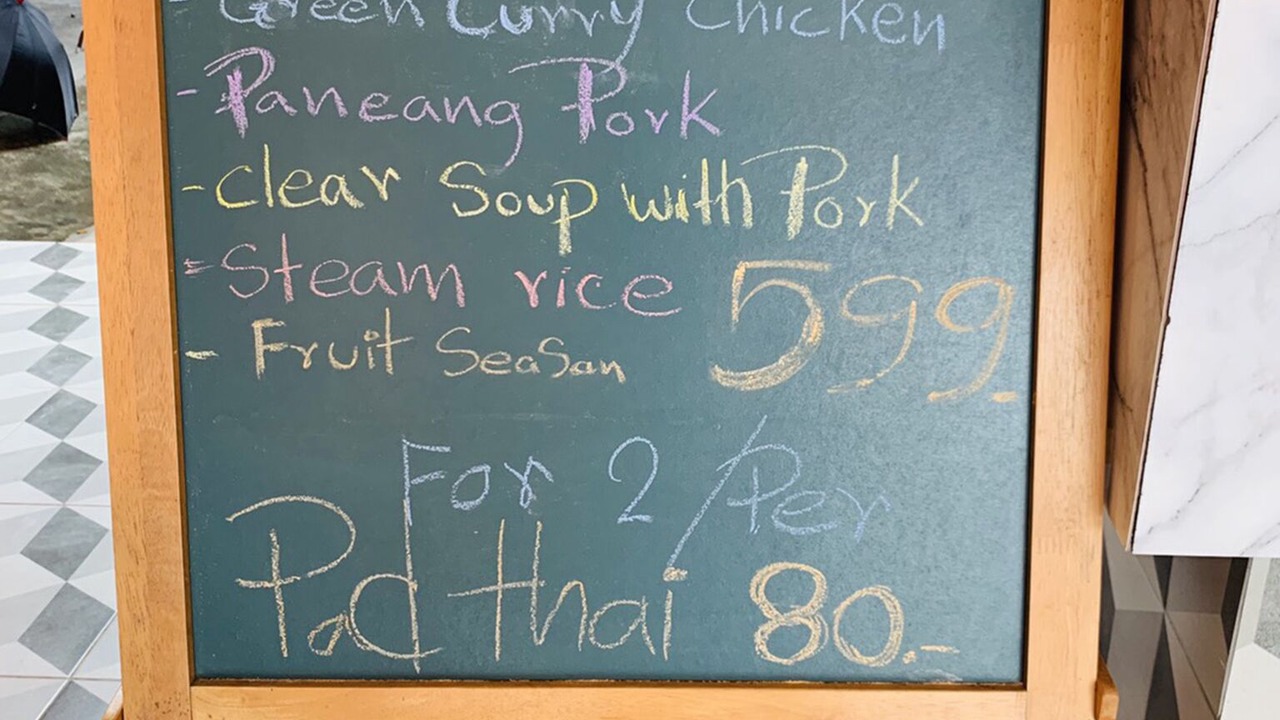 - Green Curry Chicken
- Paneang Pork
- clear Soup with Pork
- Steam rice 599.-
- Fruit Seasan
For 2/Per
Pad thai 80.-